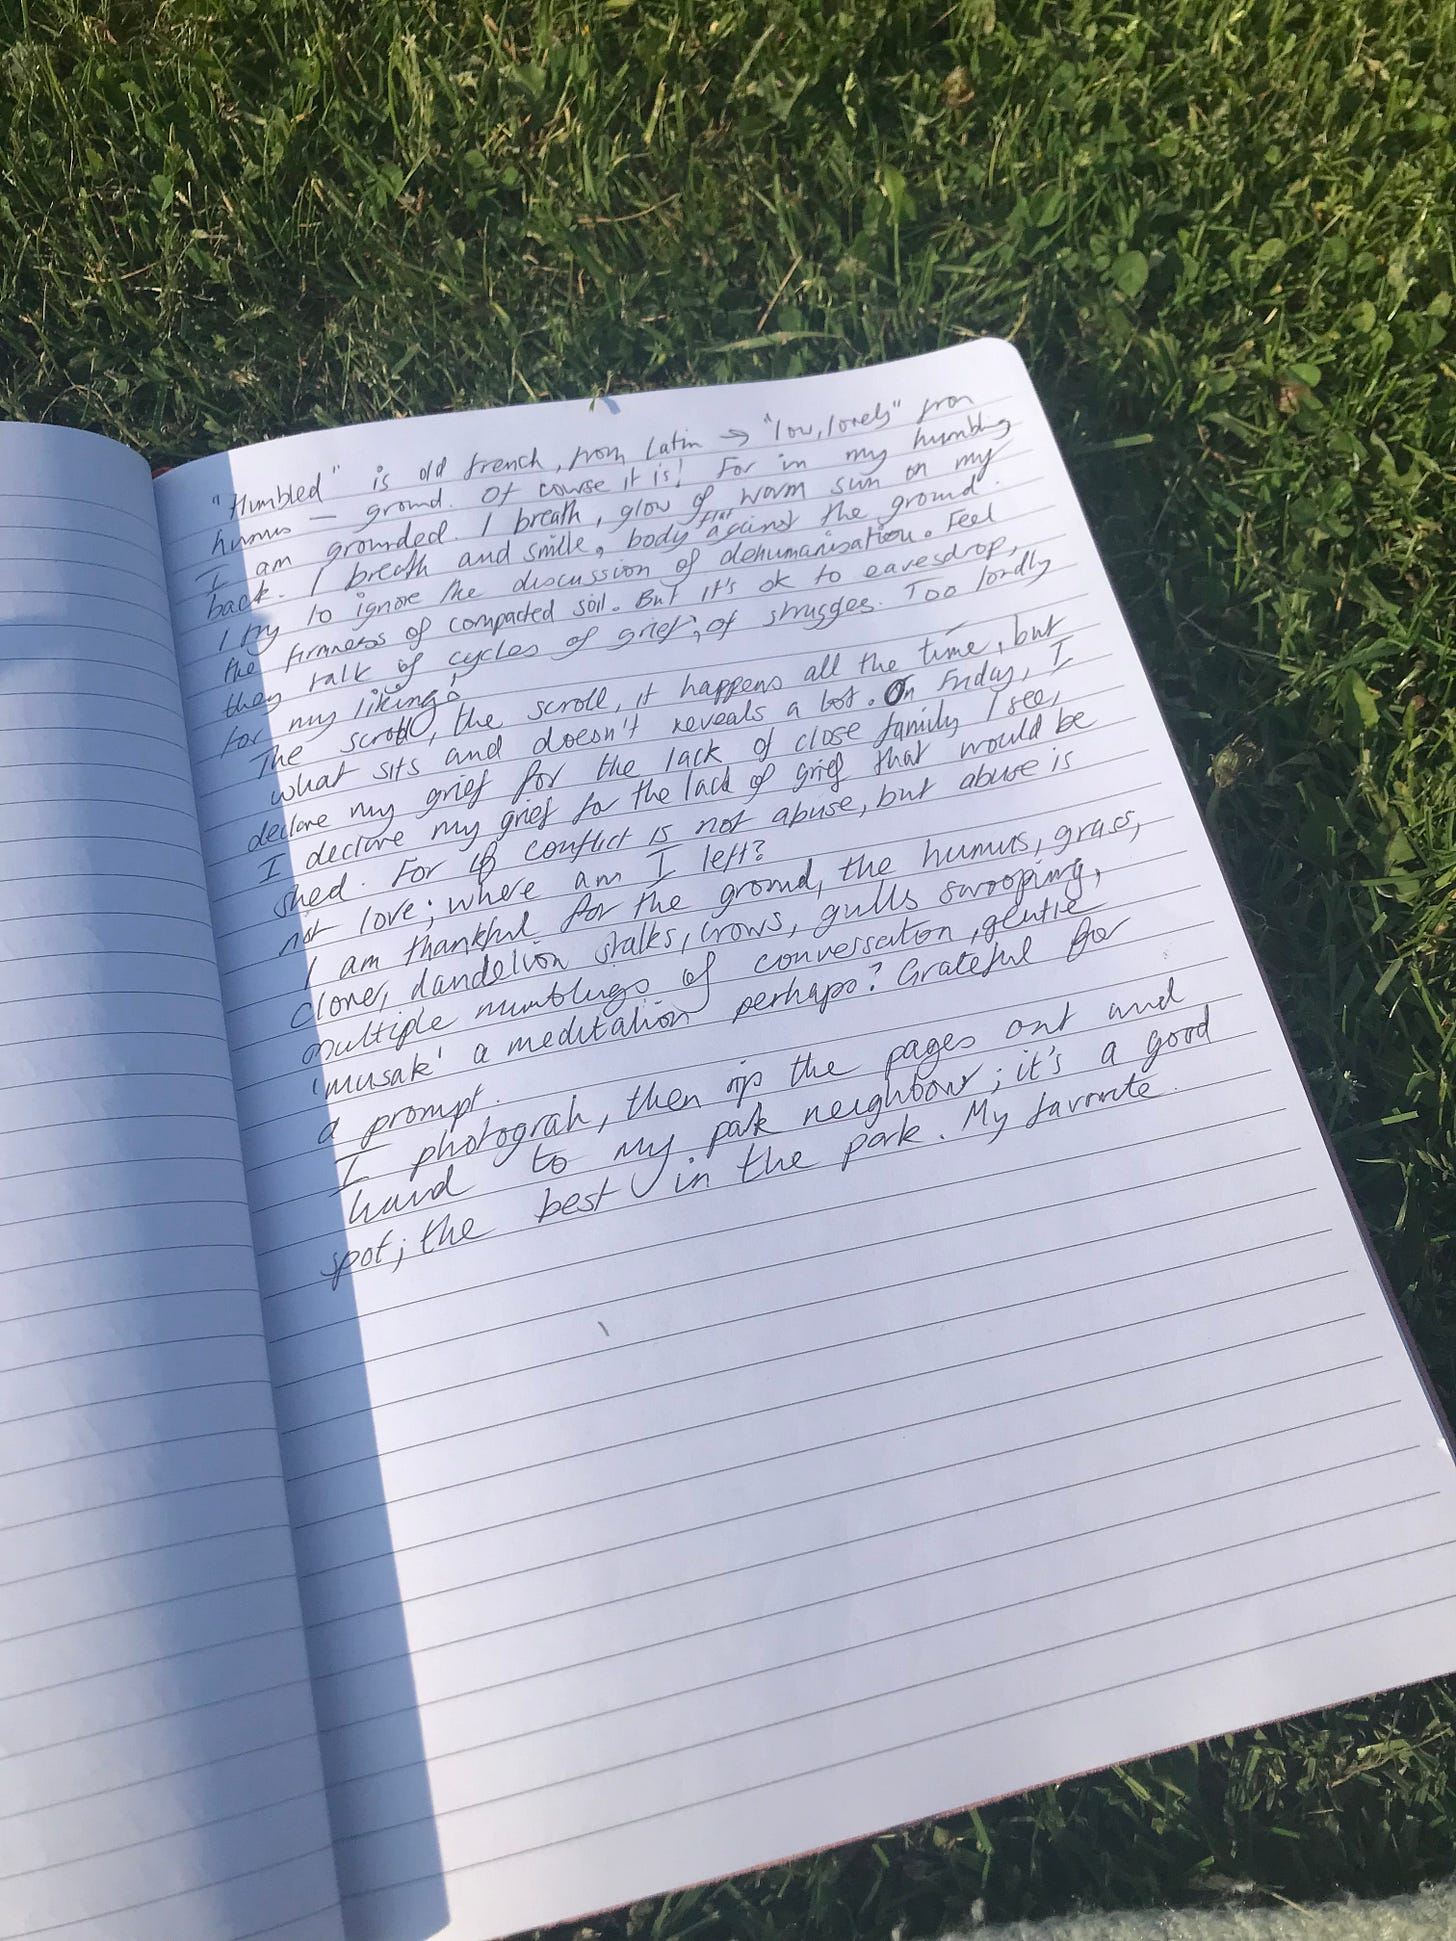 "Humbled" is old french, from Latin → "low, lowly" from
humus — ground. Of course it is! For in my humbling
I am grounded. I breath, glow of warm sun on my
back. I breath and smile, body flat against the ground.
I try to ignore the discussion of dehumanisation. Feel
the firmness of compacted soil. But it's ok to eavesdrop,
they talk of cycles of grief, of struggles. Too loudly
for my liking.
The scroll, the scroll, it happens all the time, but
what sits and doesn't reveals a lot. On Friday, I
declare my grief for the lack of close family I see,
I declare my grief for the lack of grief that would be
shed. For if conflict is not abuse, but abuse is
not love; where am I left?
I am thankful for the ground, the humus, grass,
clover, dandelion stalks, crows, gulls swooping,
multiple mumblings of conversation, gentle
'musak' a meditation perhaps? Grateful for
a prompt.
I photograh, then rip the pages out and
hand to my park neighbour; it's a good
spot; the best in the park. My favorite.